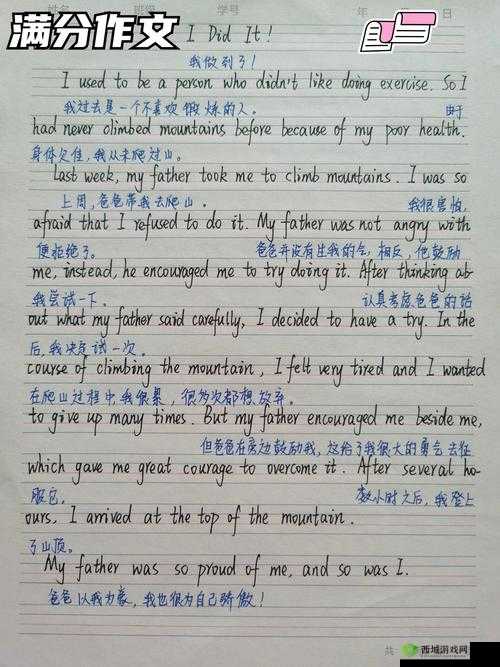 姓名 班级 学号 年 月 日
满分作文
I Did It!
我做到了!
I used to be a person who didn't like doing exercise. So I
我过去是一个不喜欢锻炼的人。 由于
had never climbed mountains before because of my poor health.
身体欠佳,我从未爬过山。
Last week, my father took me to climb mountains. I was so
上周,爸爸带我去爬山。 我很害怕,
afraid that I refused to do it. My father was not angry with
便拒绝了。 爸爸并没有生我的气,相反,他鼓励
me, instead, he encouraged me to try doing it. After thinking ab
我尝试一下。 认真考虑爸爸的话
out what my father said carefully, I decided to have a try. In the
后,我决定试一次。
course of climbing the mountain, I felt very tired and I wanted
在爬山过程中,我很累,很多次都想放弃。
to give up many times. But my father encouraged me beside me,
但爸爸在旁边鼓励我,这给了我很大的勇气去征
which gave me great courage to overcome it. After several ho
服它。 数小时之后,我登上
ours, I arrived at the top of the mountain.
了山顶。
My father was so proud of me, and so was I.
爸爸以我为豪,我也很为自己骄傲!
共
西城游戏网